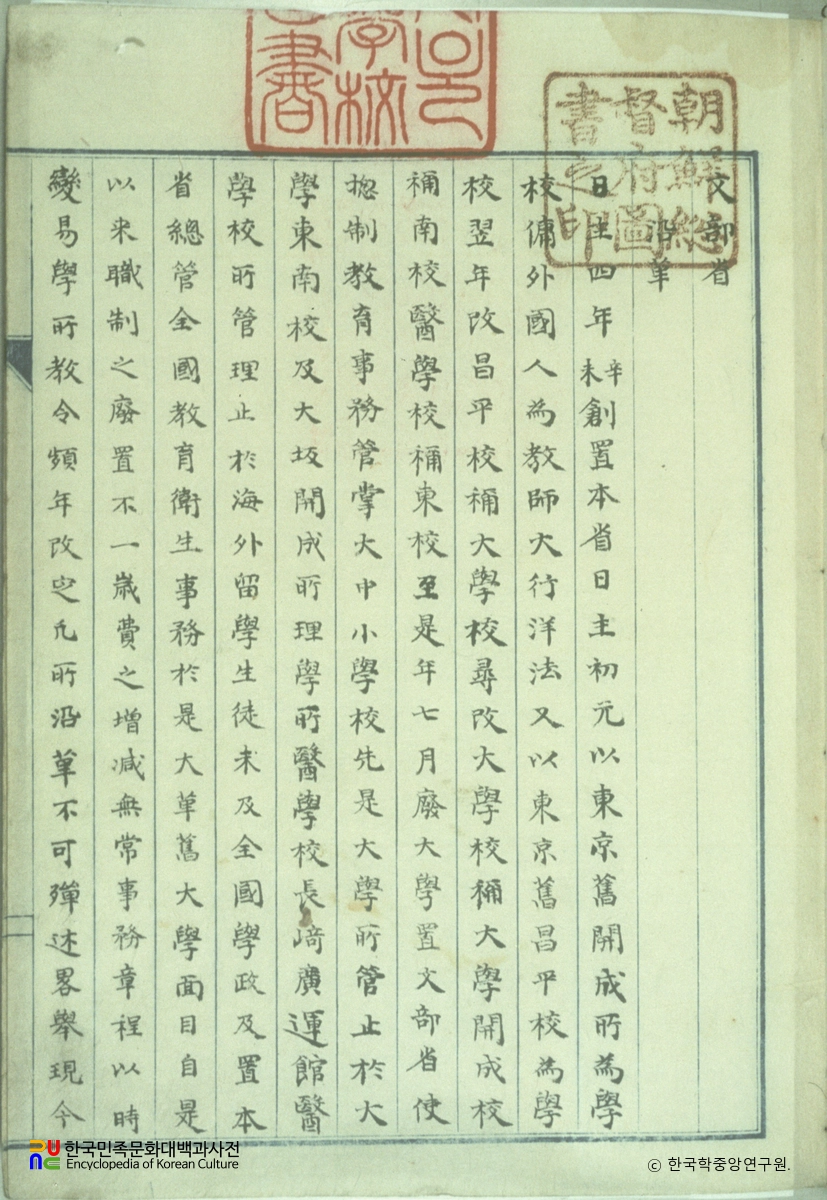 朝鮮總
督府圖
書之印
文部省
沿革
日主四年辛未創置本省日主初元以東京舊開成所為學
校傭外國人為教師大行洋法又以東京舊昌平校為學
校翌年改昌平校稱大學校尋改大學校稱大學開成校
稱南校醫學校稱東校至是年七月廢大學置文部省使
揔制教育事務管掌大中小學校先是大學所管止於大
學東南校及大坂開成所理學所醫學校長崎廣運館醫
學校所管理止於海外留學生徒未及全國學政及置本
省總管全國教育衛生事務於是大革舊大學面目自是
以來職制之廢置不一歲費之增減無常事務章程以時
變易學所教令頻年改定凡所沿革不可殫述畧舉現今
한국민족문화대백과사전
Encyclopedia of Korean Culture
© 한국학중앙연구원.